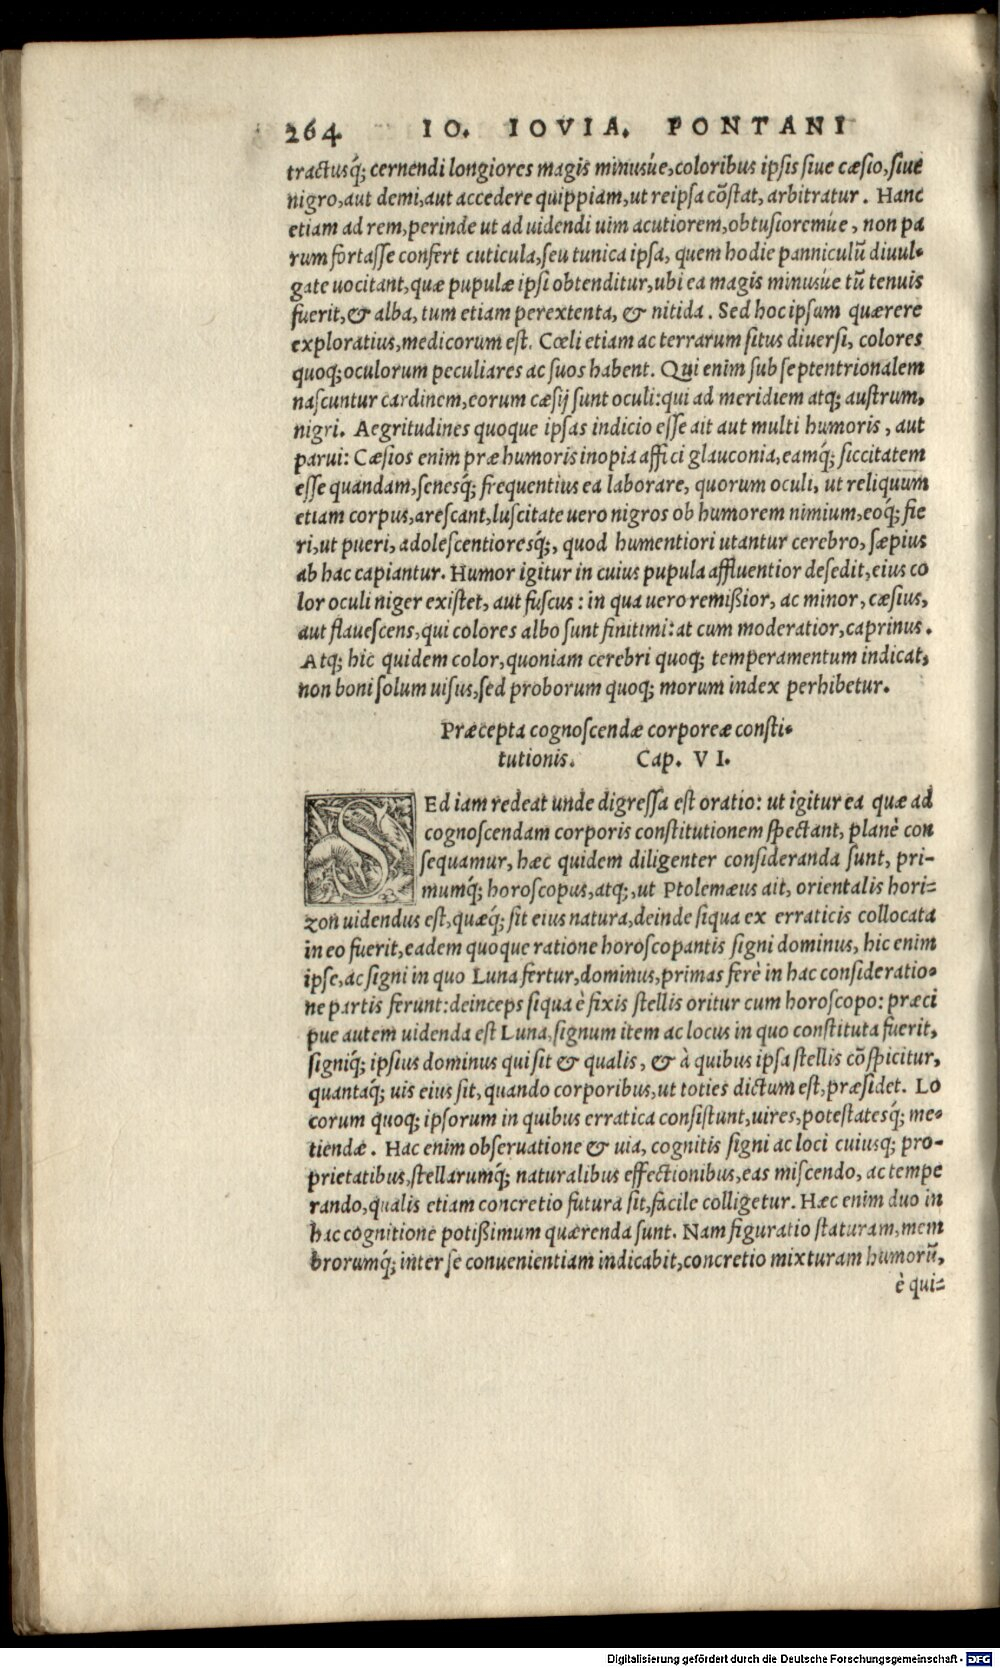 264 IO. IOVIA. PONTANI
tractusq́; cernendi longiores magis minusúe, coloribus ipsis siue cæsio, siue
nigro, aut demi, aut accedere quippiam, ut reipsa cõstat, arbitratur. Hanc
etiam ad rem, perinde ut ad uidendi uim acutiorem, obtusioremúe, non pa
rum fortasse confert cuticula, seu tunica ipsa, quem hodie panniculũ diuul-
gate uocitant, quæ pupulæ ipsi obtenditur, ubi ea magis minusúe tũ tenuis
fuerit, & alba, tum etiam perextenta, & nitida. Sed hoc ipsum quærere
exploratius, medicorum est. Cœli etiam ac terrarum situs diuersi, colores
quoq; oculorum peculiares ac suos habent. Qui enim sub septentrionalem
nascuntur cardinem, eorum cæsij sunt oculi: qui ad meridiem atq; austrum,
nigri. Aegritudines quoque ipsas indicio esse ait aut multi humoris, aut
parui: Cæsios enim præ humoris inopia affici glauconia, eamq́; siccitatem
esse quandam, senesq́; frequentius ea laborare, quorum oculi, ut reliquum
etiam corpus, arescant, luscitate uero nigros ob humorem nimium, eoq́; fie
ri, ut pueri, adolescentioresq́;, quod humentiori utantur cerebro, sæpius
ab hac capiantur. Humor igitur in cuius pupula affluentior desedit, eius co
lor oculi niger existet, aut fuscus: in qua uero remißior, ac minor, cæsius,
aut flauescens, qui colores albo sunt finitimi: at cum moderatior, caprinus.
Atq; hic quidem color, quoniam cerebri quoq; temperamentum indicat,
non boni solum uisus, sed proborum quoq; morum index perhibetur.
Præcepta cognoscendæ corporeæ consti-
tutionis. Cap. VI.
SEd iam redeat unde digressa est oratio: ut igitur ea quæ ad
cognoscendam corporis constitutionem spectant, planè con
sequamur, hæc quidem diligenter consideranda sunt, pri-
mumq́; horoscopus, atq;, ut Ptolemæus ait, orientalis hori-
zon uidendus est, quæq́; sit eius natura, deinde siqua ex erraticis collocata
in eo fuerit, eadem quoque ratione horoscopantis signi dominus, hic enim
ipse, ac signi in quo Luna fertur, dominus, primas ferè in hac consideratio-
ne partis ferunt: deinceps siqua è fixis stellis oritur cum horoscopo: præci
pue autem uidenda est Luna, signum item ac locus in quo constituta fuerit,
signiq́; ipsius dominus qui sit & qualis, & à quibus ipsa stellis cõspicitur,
quantaq́; uis eius sit, quando corporibus, ut toties dictum est, præsidet. Lo
corum quoq; ipsorum in quibus erratica consistunt, uires, potestatesq́; me-
tiendæ. Hac enim obseruatione & uia, cognitis signi ac loci cuiusq; pro-
prietatibus, stellarumq́; naturalibus effectionibus, eas miscendo, ac tempe
rando, qualis etiam concretio futura sit, facile colligetur. Hæc enim duo in
hac cognitione potißimum quærenda sunt. Nam figuratio staturam, mem
brorumq́; inter se conuenientiam indicabit, concretio mixturam humorũ,
è qui-
Digitalisierung gefördert durch die Deutsche Forschungsgemeinschaft - DFG